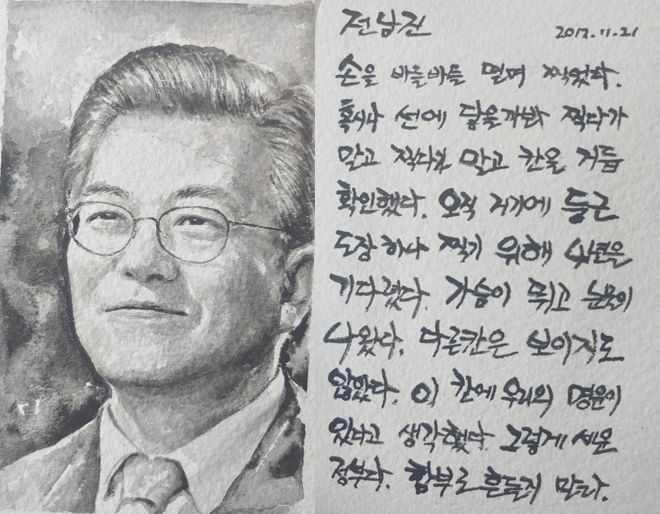 전남진
2017.11.21
손을 바들바들 떨며 찍었다.
혹시나 선에 닿을까봐 찍다가
말고 찍다가 말고 칸을 거듭
확인했다. 오직 거기에 둥근
도장 하나 찍기 위해 4년을
기다렸다. 가슴이 뛰고 눈물이
나왔다. 다른칸은 보이지도
않았다. 이 칸에 우리의 명운이
있다고 생각했다. 그렇게 세운
정부다. 함부로 흔들지 말라.